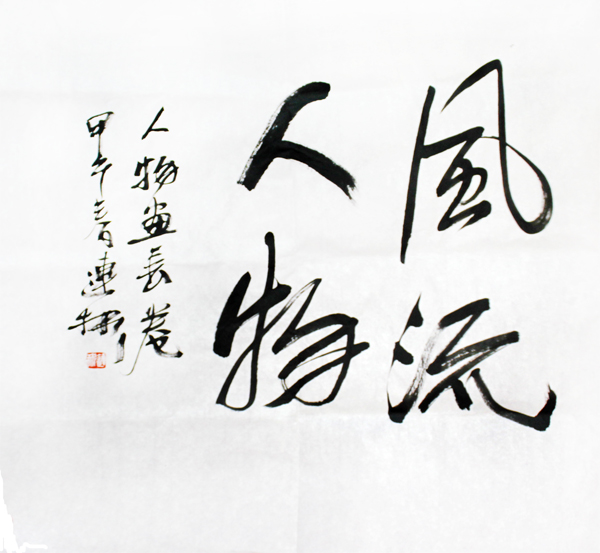 風流
人物
人物畫長卷
甲午春連